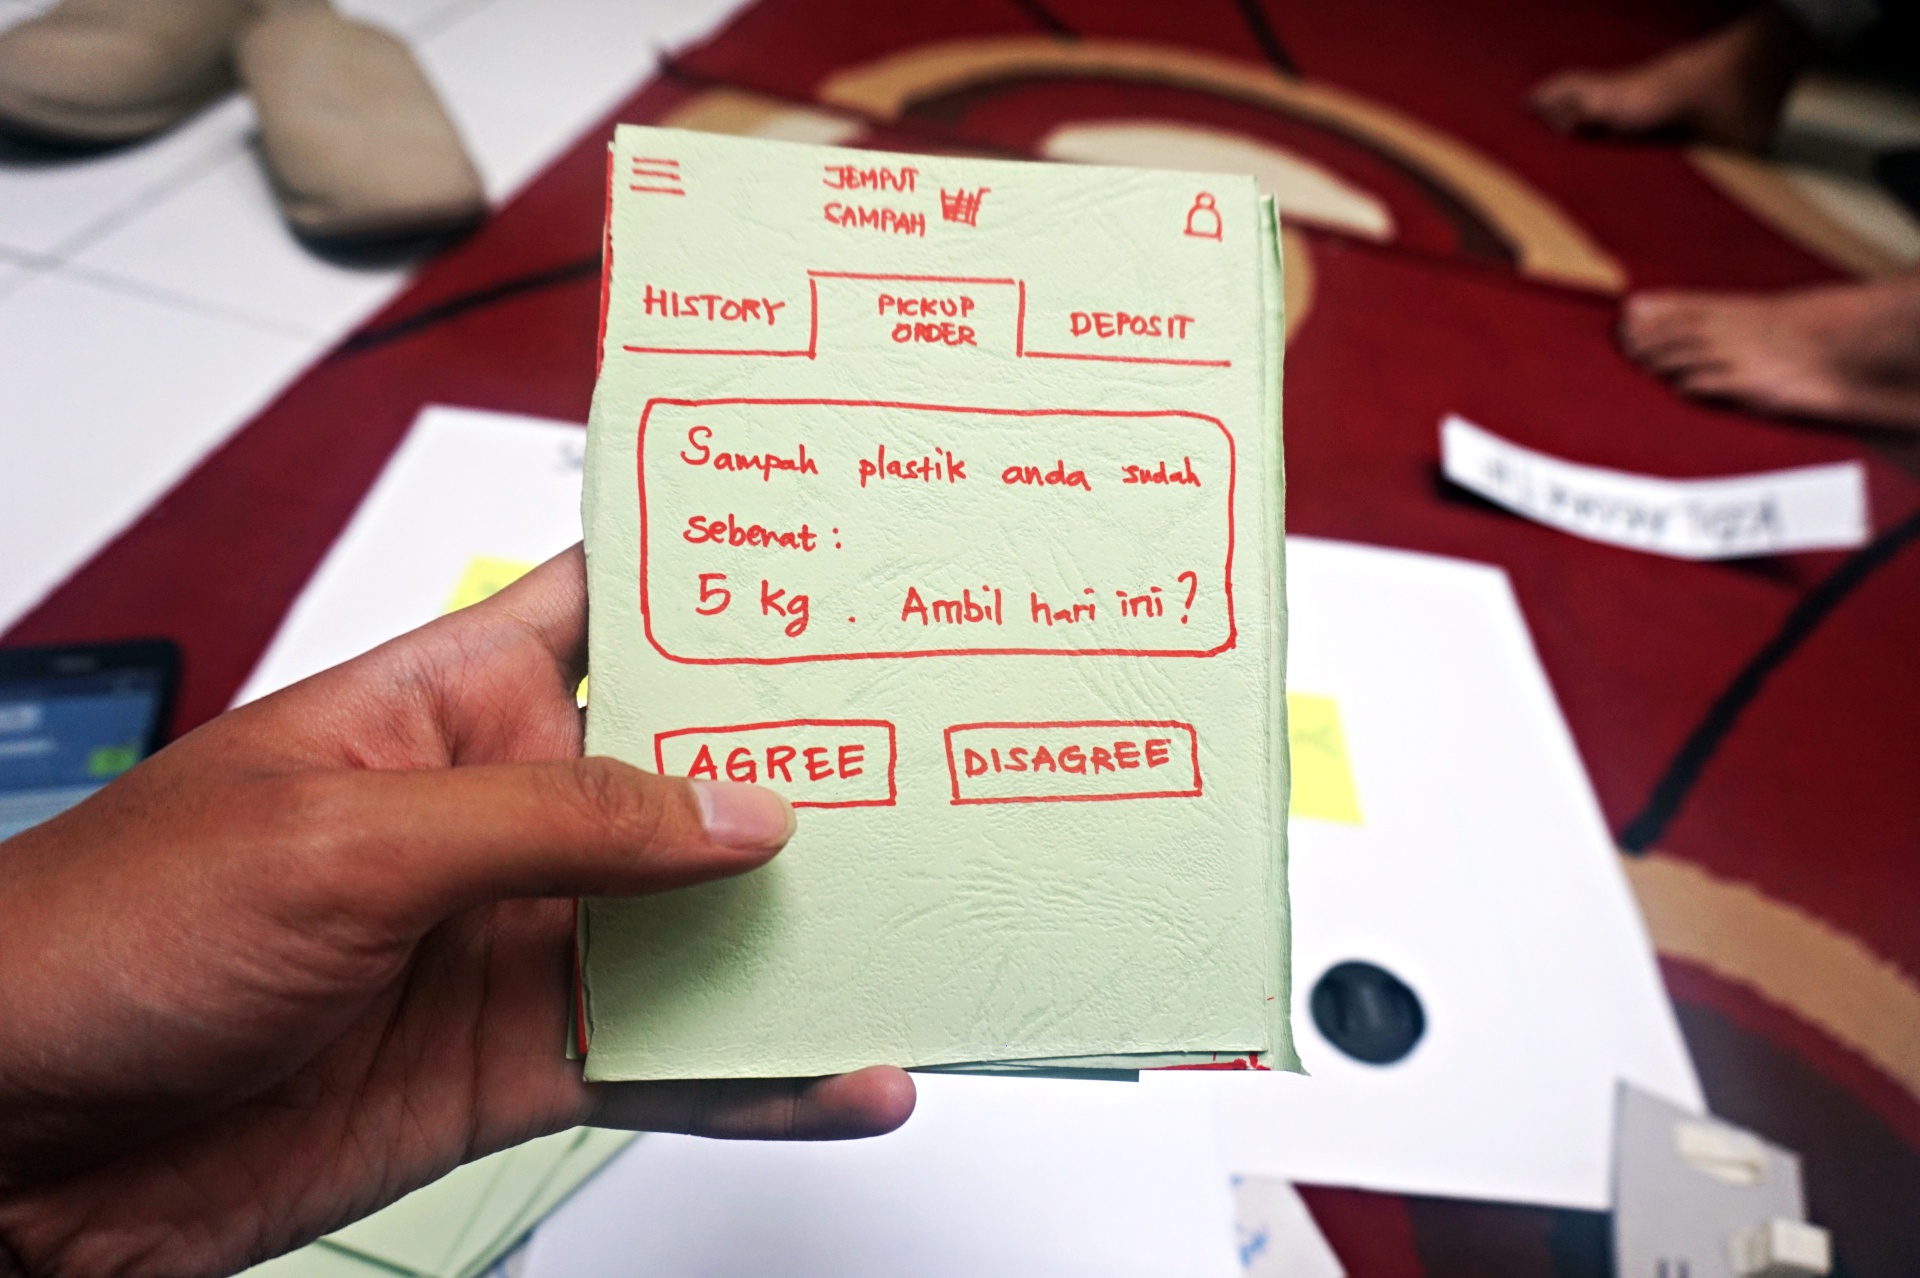 JEMPUT
SAMPAH
HISTORY
PICKUP
ORDER
DEPOSIT
Sampah plastik anda sudah
seberat :
5 kg . Ambil hari ini ?
AGREE
DISAGREE